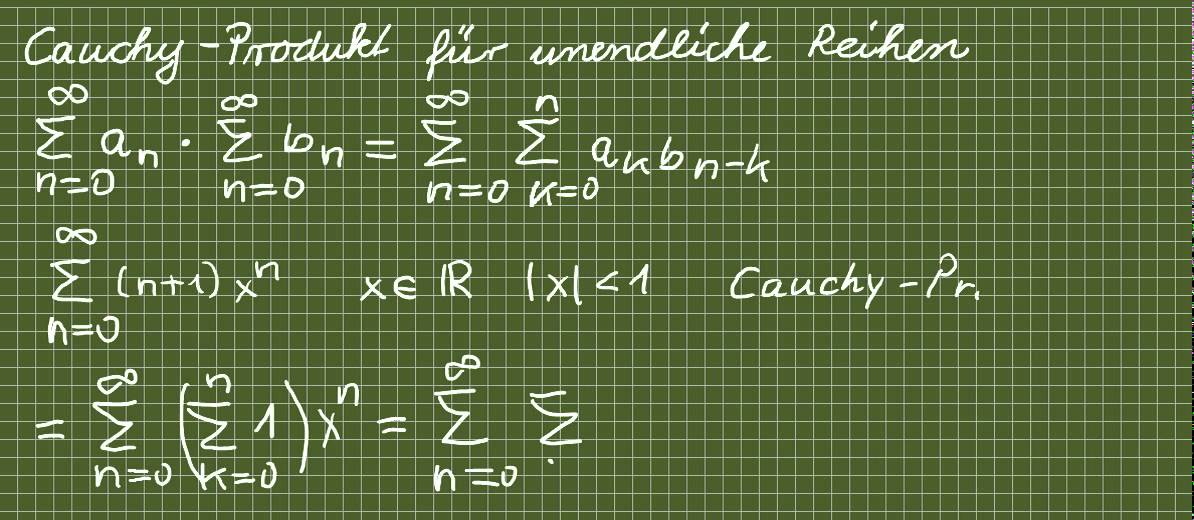 Cauchy-Produkt für unendliche Reihen
∑_{n=0}^{∞} a_n · ∑_{n=0}^{∞} b_n = ∑_{n=0}^{∞} ∑_{k=0}^{n} a_k b_{n-k}
∑_{n=0}^{∞} (n+1) x^n x ∈ ℝ |x| < 1 Cauchy-Pr.
= ∑_{n=0}^{∞} (∑_{k=0}^{n} 1) x^n = ∑_{n=0}^{∞} ∑